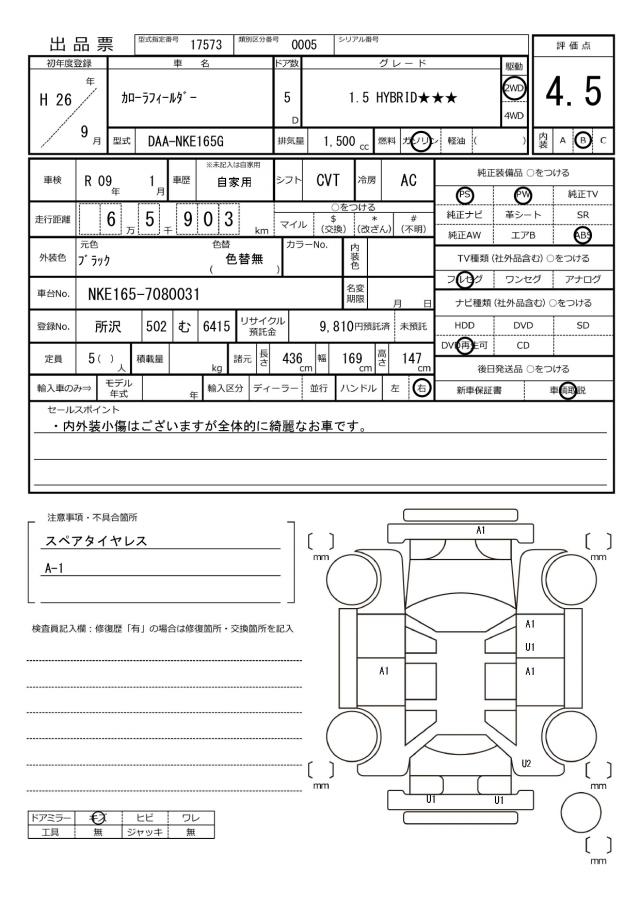 出品票 型式指定番号 17573 類別区分番号 0005 シリアル番号
評価点
初年度登録 車名 ドア数 グレード 駆動
H 26 年 ｶﾛｰﾗﾌｨｰﾙﾀﾞｰ 5 D 1.5 HYBRID★★★ 2WD 4.5
9 月 4WD
型式 DAA-NKE165G 排気量 1,500 cc 燃料 ガソリン 軽油 ( ) 内装 A B C
車検 R 09 年 1 月 車歴 ※未記入は自家用 自家用 シフト CVT 冷房 AC
走行距離 6 5 9 0 3 万 千 km
○をつける
マイル $ (交換) * (改ざん) # (不明)
外装色 元色 ﾌﾞﾗｯｸ 色替 ( 色替無 ) カラーNo. 内装色
車台No. NKE165-7080031 名変期限 月 日
登録No. 所沢 502 む 6415 リサイクル預託金 9,810円預託済 未預託
定員 5( ) 人 積載量 kg 諸元 長さ 436 cm 幅 169 cm 高さ 147 cm
輸入車のみ⇒ モデル年式 年 輸入区分 ディーラー 並行 ハンドル 左 右
純正装備品 ○をつける
PS PW 純正TV
純正ナビ 革シート SR
純正AW エアB ABS
TV種類 (社外品含む) ○をつける
フルセグ ワンセグ アナログ
ナビ種類 (社外品含む) ○をつける
HDD DVD SD
DVD再生可 CD
後日発送品 ○をつける
新車保証書 車輌取説
セールスポイント
・内外装小傷はございますが全体的に綺麗なお車です。
注意事項・不具合箇所
スペアタイヤレス
A-1
検査員記入欄：修復歴「有」の場合は修復箇所・交換箇所を記入
A1
[ ] mm
[ ] mm
A1
U1
A1
A1
U2
[ ] mm
[ ] mm
U1 U1
[ ] mm
ドアミラー キズ ヒビ ワレ
工具 無 ジャッキ 無